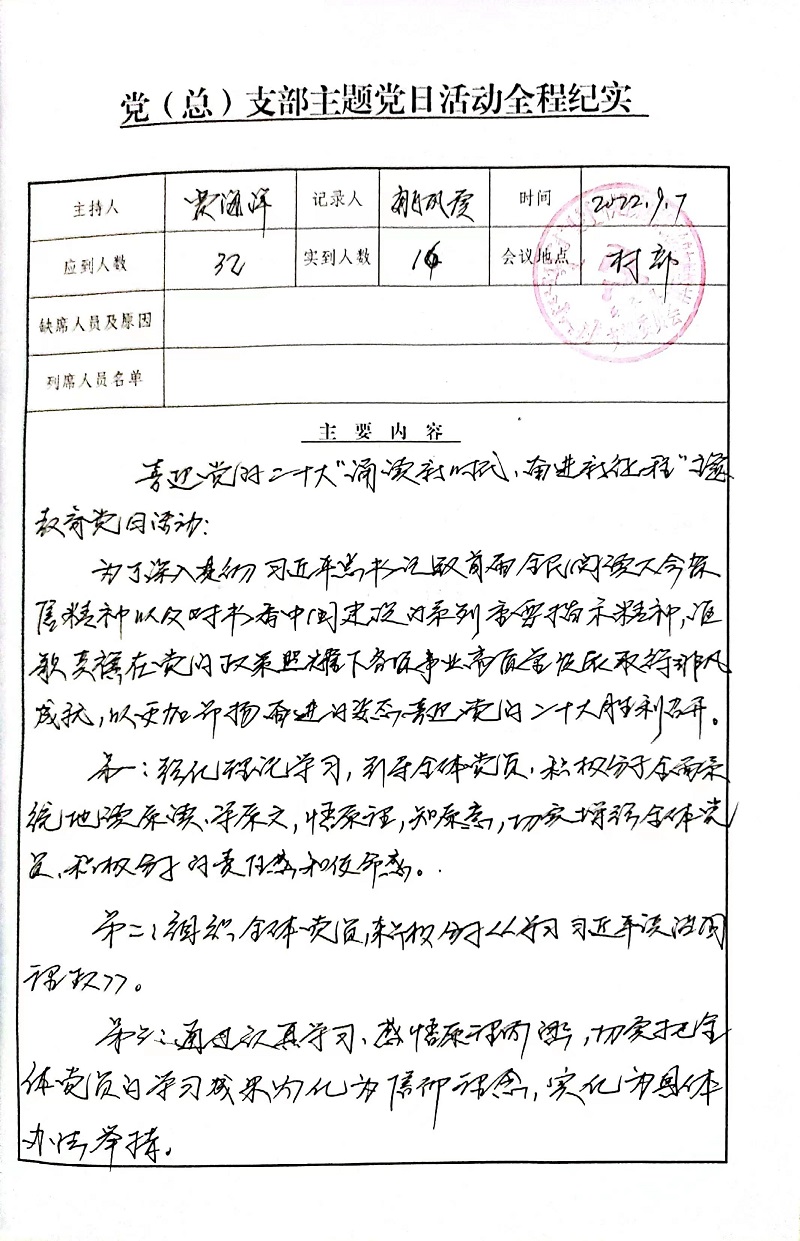 党（总）支部主题党日活动全程纪实
主持人 海洋 记录人 凤 时间 2022.9.7
应到人数 32 实到人数 16 会议地点 村部
缺席人员及原因
列席人员名单
主要内容
喜迎党的二十大“诵读新时代，奋进新征程”主题
教育党日活动：
为了深入 习近平总书记致首届全民阅读大会贺
信精神以及对书香中国建设的系列重要指示精神，
在党的政策照耀下各项事业高质量发展取得非凡
成就，以更加昂扬奋进的姿态喜迎党的二十大胜利召开。
第一：强化理论学习，引导全体党员、积极分子全面系
统地读原读、学原文，悟原理，知原意，切实增强全体党
员、积极分子的责任感和使命感。
第二：组织全体党员，积极分子《学习习近平谈治国
理政》。
第三：通过认真学习、感悟原理内涵，切实把全
体党员的学习成果内化为信仰理念，实化为具体
办法举措。